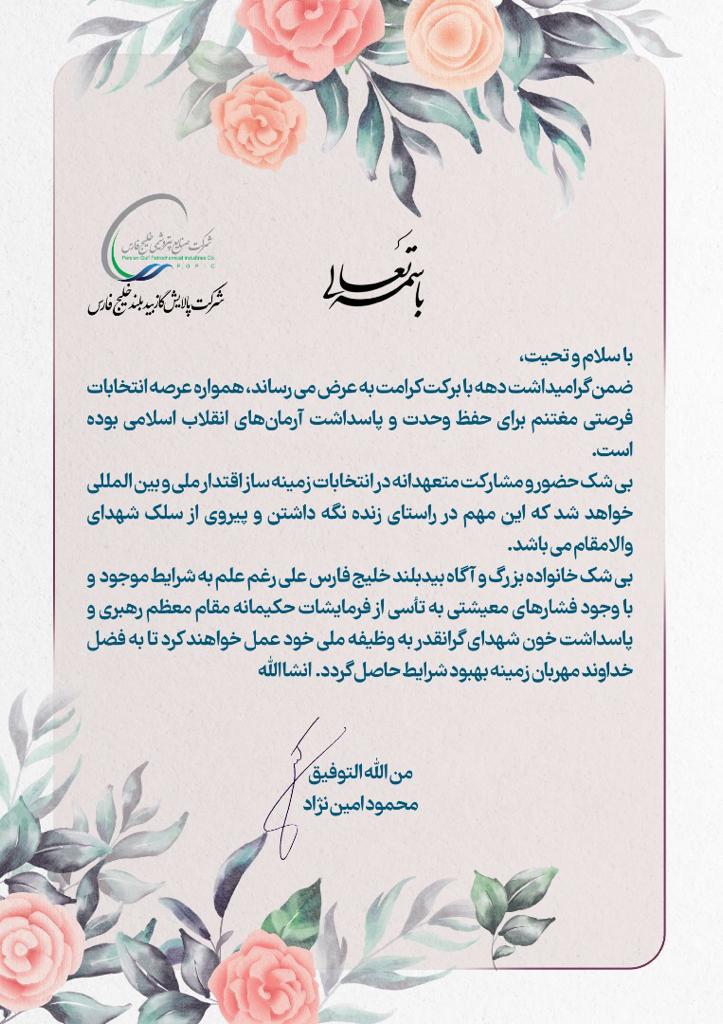 باسمه تعالی
شرکت صنایع پتروشیمی خلیج فارس
Persian Gulf Petrochemical Industries Co.
P G P I C
شرکت پالایش گاز بیدبلند خلیج فارس
با سلام و تحیت،
ضمن گرامیداشت دهه با برکت کرامت به عرض می رساند، همواره عرصه انتخابات
فرصتی مغتنم برای حفظ وحدت و پاسداشت آرمان‌های انقلاب اسلامی بوده
است.
بی شک حضور و مشارکت متعهدانه در انتخابات زمینه ساز اقتدار ملی و بین المللی
خواهد شد که این مهم در راستای زنده نگه داشتن و پیروی از سلک شهدای
والامقام می باشد.
بی شک خانواده بزرگ و آگاه بیدبلند خلیج فارس علی رغم علم به شرایط موجود و
با وجود فشارهای معیشتی به تأسی از فرمایشات حکیمانه مقام معظم رهبری و
پاسداشت خون شهدای گرانقدر به وظیفه ملی خود عمل خواهند کرد تا به فضل
خداوند مهربان زمینه بهبود شرایط حاصل گردد. انشاالله
من الله التوفیق
محمود امین نژاد